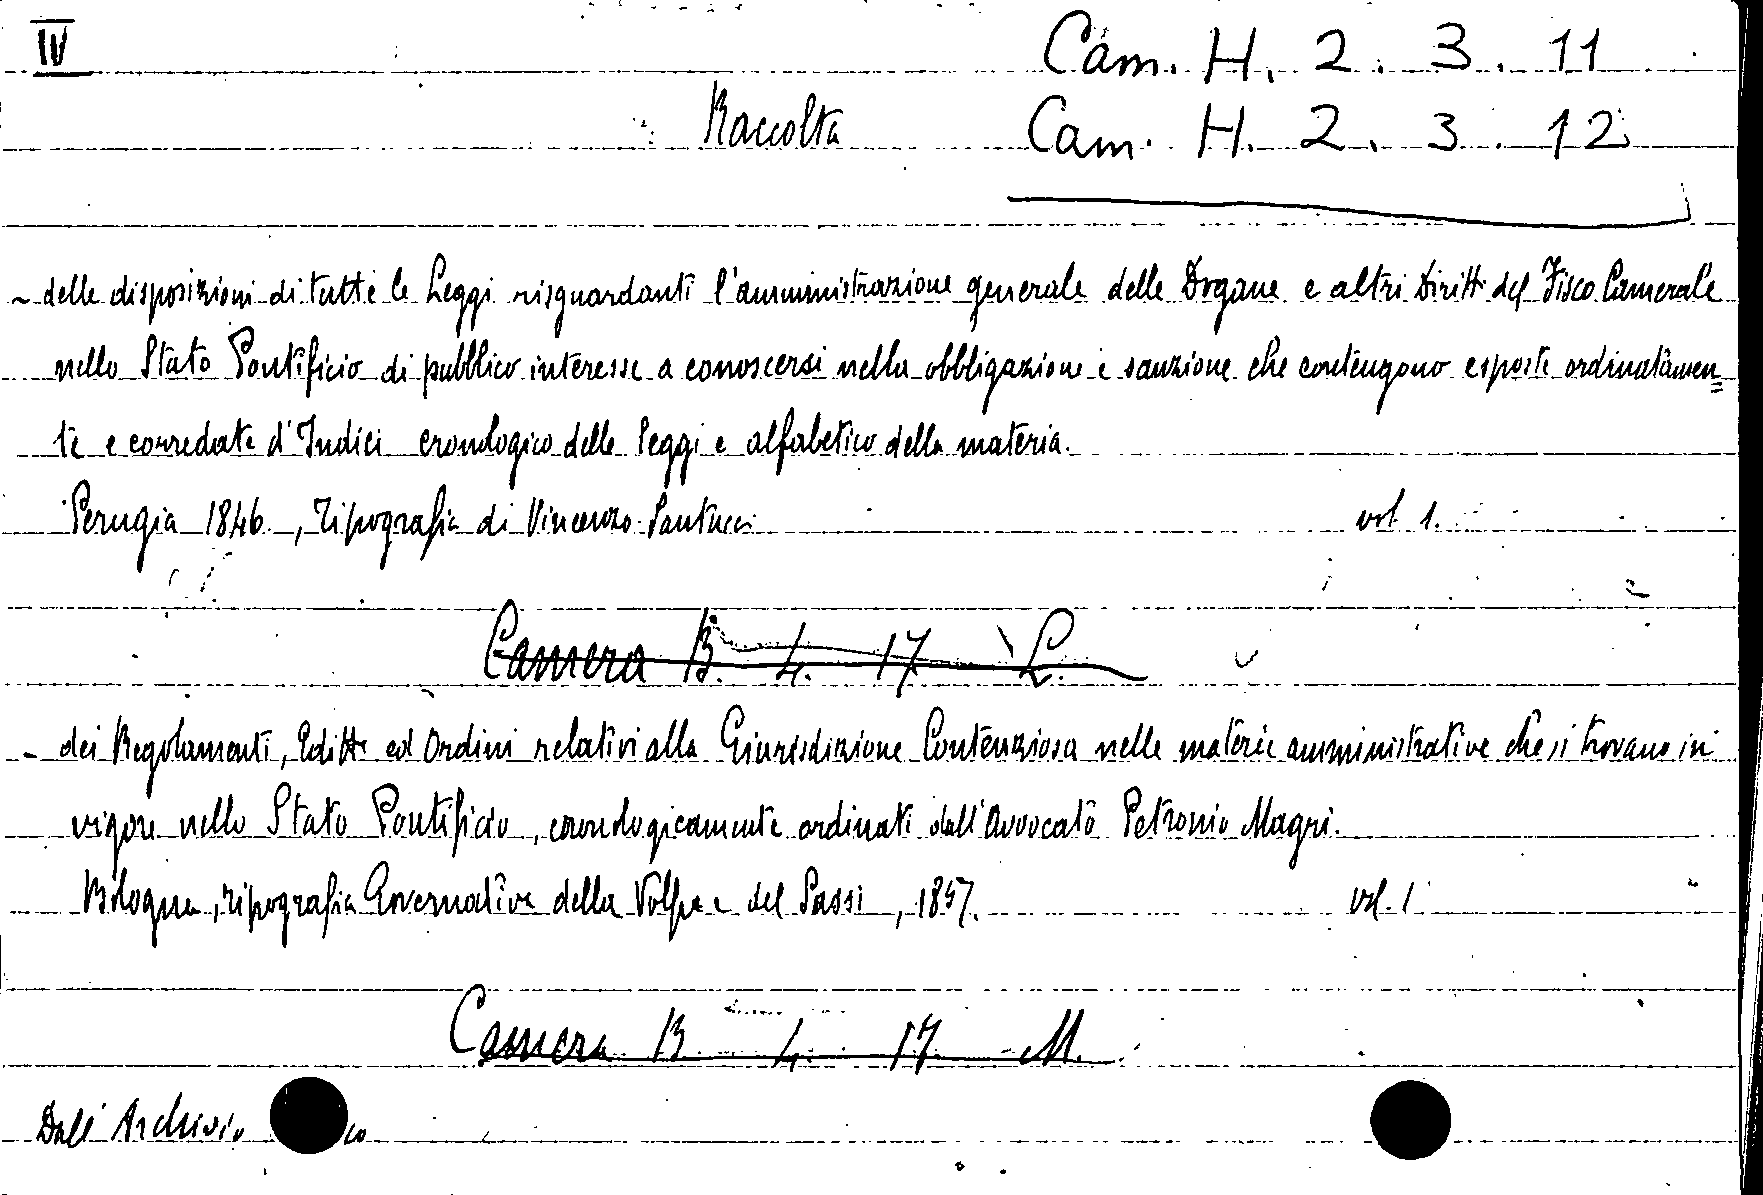 IV
Cam. H. 2. 3. 11
Raccolta Cam. H. 2. 3. 12
- delle disposizioni di tutte le Leggi risguardanti l'amministrazione generale delle Dogane e altri Diritti del Fisco Camerale
nello Stato Pontificio di pubblico interesse a conoscersi nella obbligazione e sanzione che contengono esposte ordinatamen=
te e corredate d'Indici cronologico delle leggi e alfabetico della materia.
Perugia 1846., Tipografia di Vincenzo Santucci vol 1.
Camera B. 4. 17 L.
- dei Regolamenti, Editti ed Ordini relativi alla Giurisdizione Contenziosa nelle materie amministrative che si trovano in
vigore nello Stato Pontificio, cronologicamente ordinati dall'Avvocato Petronio Magri.
Bologna, tipografia Governativa della Volpe e del Sassi, 1857. vol. 1
Camera B 4. 17 M.
Dall'Archivio co